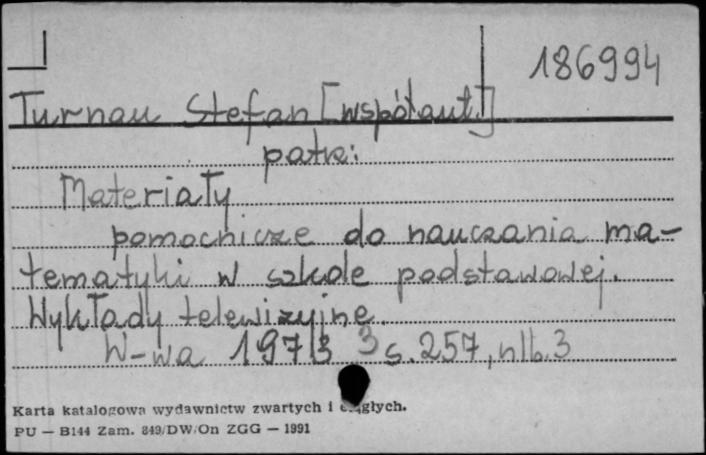 186994
Turnau Stefan [współaut.]
patrz:
Materiały
pomocnicze do nauczania ma-
tematyki w szkole podstawowej.
Wykłady telewizyjne.
W-wa 1973 s. 257, nlb. 3
Karta katalogowa wydawnictw zwartych i ciągłych.
PU — B144 Zam. 849/DW/On ZGG — 1991